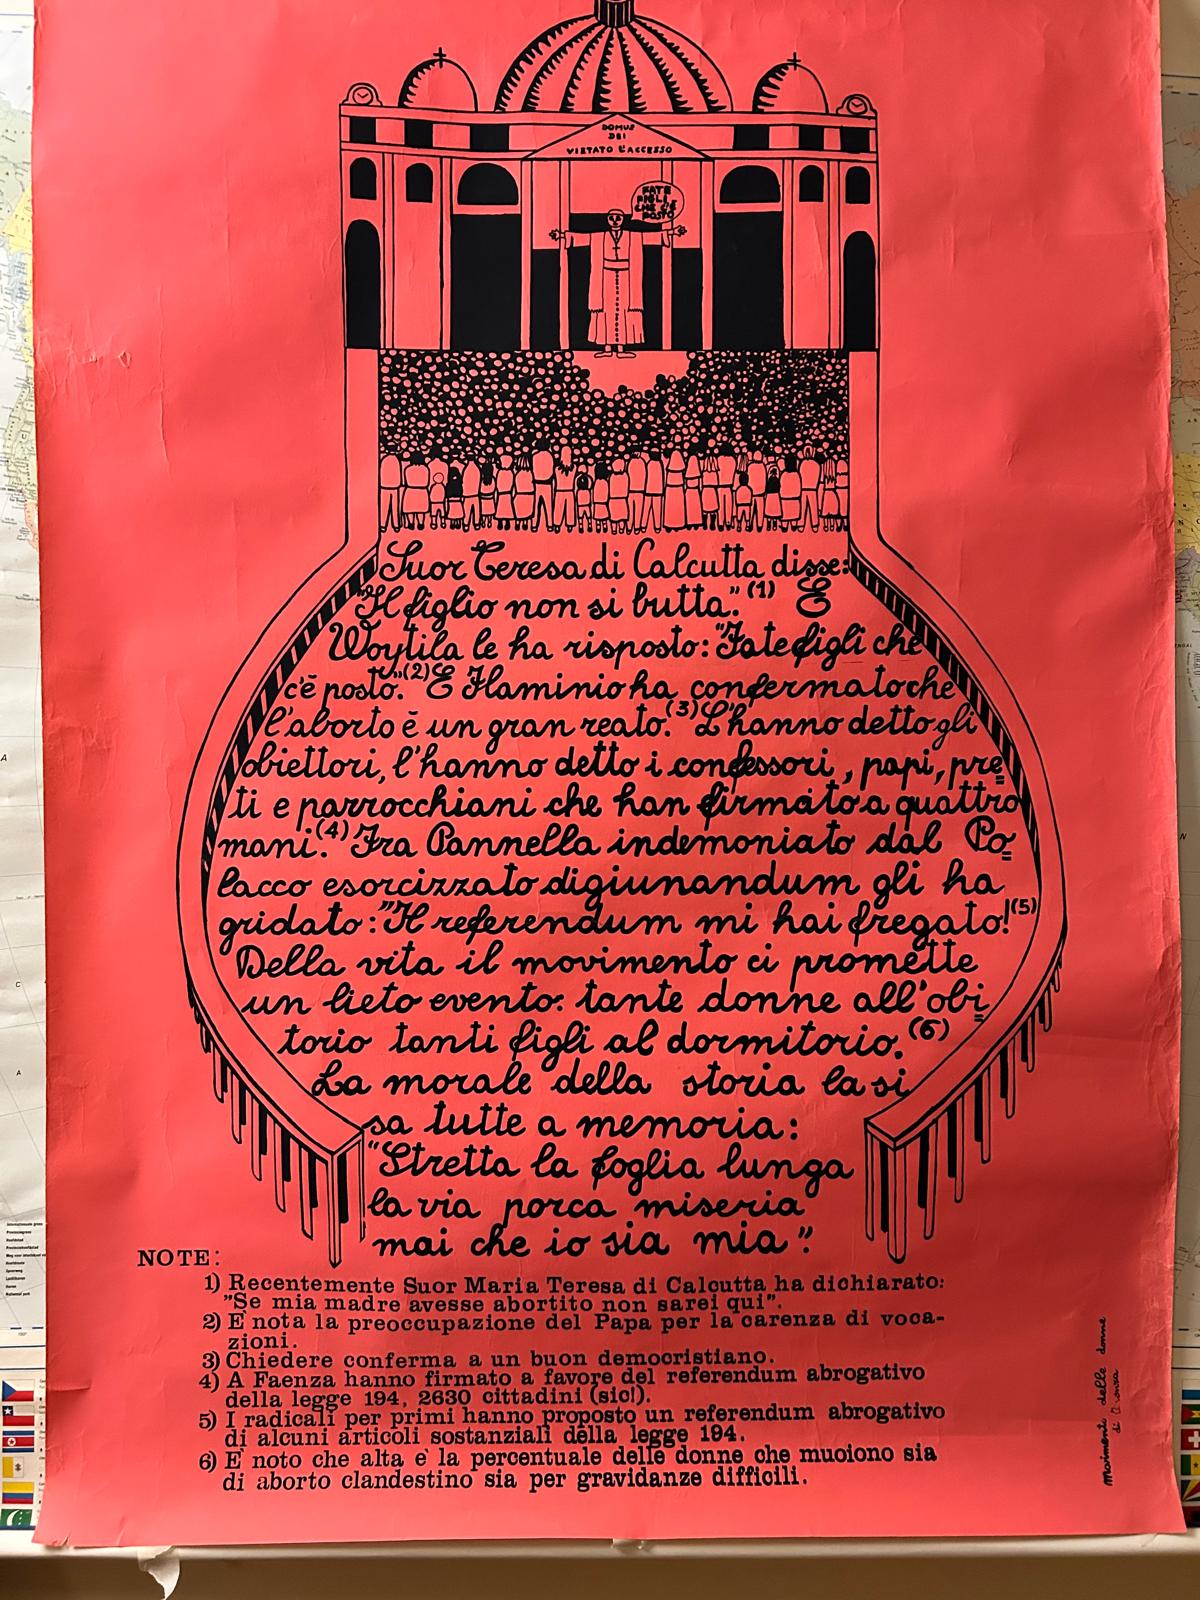 DOMUS
DEI
VIETATO L'ACCESSO
FATE
FIGLI
CHE C'È
POSTO
Suor Teresa di Calcutta disse:
"Il figlio non si butta."(1) E
Woytila le ha risposto: "Fate figli che
c'è posto."(2) E Flaminio ha confermato che
l'aborto è un gran reato.(3) L'hanno detto gli
obiettori, l'hanno detto i confessori, papi, pre=
ti e parrocchiani che han firmato a quattro
mani.(4) Fra Pannella indemoniato dal Po=
lacco esorcizzato digiunandum gli ha
gridato: "Il referendum mi hai fregato!(5)
Della vita il movimento ci promette
un lieto evento: tante donne all'obi=
torio tanti figli al dormitorio.(6)
La morale della storia la si
sa tutte a memoria:
"Stretta la foglia lunga
la via porca miseria
mai che io sia mia".
NOTE:
1) Recentemente Suor Maria Teresa di Calcutta ha dichiarato:
"Se mia madre avesse abortito non sarei qui".
2) E' nota la preoccupazione del Papa per la carenza di voca-
zioni.
3) Chiedere conferma a un buon democristiano.
4) A Faenza hanno firmato a favore del referendum abrogativo
della legge 194, 2630 cittadini (sic!).
5) I radicali per primi hanno proposto un referendum abrogativo
di alcuni articoli sostanziali della legge 194.
6) E' noto che alta e' la percentuale delle donne che muoiono sia
di aborto clandestino sia per gravidanze difficili.
movimento delle donne
di